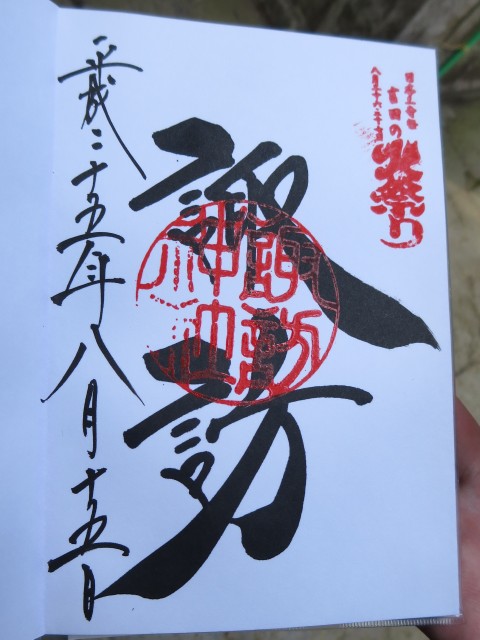 日本三奇祭
吉田の火祭り
八月二十六・二十七日
諏訪
諏訪神社
平成二十五年八月十五日